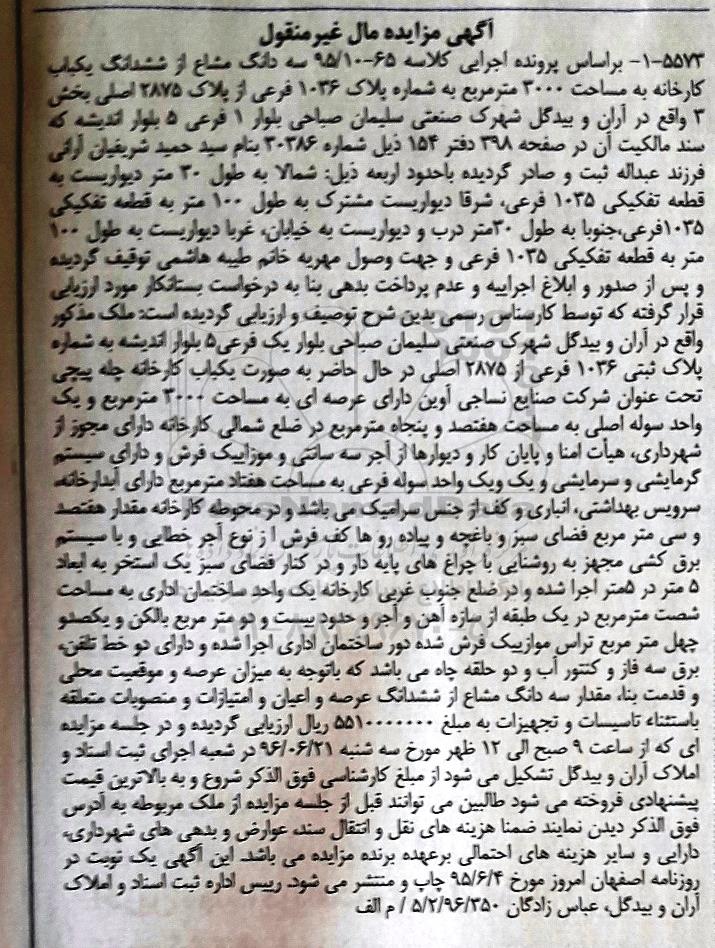 آگهی مزایده مال غیرمنقول
۵۵۷۳-۱- براساس پرونده اجرایی کلاسه ۶۵-۹۵/۱۰ سه دانگ مشاع از ششدانگ یکباب
کارخانه به مساحت ۳۰۰۰ مترمربع به شماره پلاک ۱۰۳۶ فرعی از پلاک ۲۸۷۵ اصلی بخش
۳ واقع در آران و بیدگل شهرک صنعتی سلیمان صباحی بلوار ۱ فرعی ۵ بلوار اندیشه که
سند مالکیت آن در صفحه ۳۹۸ دفتر ۱۵۴ ذیل شماره ۳۰۳۸۶ بنام سید حمید شریفیان آرانی
فرزند عبداله ثبت و صادر گردیده باحدود اربعه ذیل: شمالا به طول ۳۰ متر دیواریست به
قطعه تفکیکی ۱۰۳۵ فرعی، شرقا دیواریست مشترک به طول ۱۰۰ متر به قطعه تفکیکی
۱۰۳۵فرعی،جنوبا به طول ۳۰متر درب و دیواریست به خیابان، غربا دیواریست به طول ۱۰۰
متر به قطعه تفکیکی ۱۰۳۵ فرعی و جهت وصول مهریه خانم طیبه هاشمی توقیف گردیده
و پس از صدور و ابلاغ اجراییه و عدم پرداخت بدهی بنا به درخواست بستانکار مورد ارزیابی
قرار گرفته که توسط کارشناس رسمی بدین شرح توصیف و ارزیابی گردیده است: ملک مذکور
واقع در آران و بیدگل شهرک صنعتی سلیمان صباحی بلوار یک فرعی۵ بلوار اندیشه به شماره
پلاک ثبتی ۱۰۳۶ فرعی از ۲۸۷۵ اصلی در حال حاضر به صورت یکباب کارخانه چله پیچی
تحت عنوان شرکت صنایع نساجی آوین دارای عرصه ای به مساحت ۳۰۰۰ مترمربع و یک
واحد سوله اصلی به مساحت هفتصد و پنجاه مترمربع در ضلع شمالی کارخانه دارای مجوز از
شهرداری، هیأت امنا و پایان کار و دیوارها از آجر سه سانتی و موزاییک فرش و دارای سیستم
گرمایشی و سرمایشی و یک ویک واحد سوله فرعی به مساحت هفتاد مترمربع دارای آبدارخانه،
سرویس بهداشتی، انباری و کف از جنس سرامیک می باشد و در محوطه کارخانه مقدار هفتصد
و سی متر مربع فضای سبز و باغچه و پیاده رو ها کف فرش ا ز نوع آجر خطایی و با سیستم
برق کشی مجهز به روشنایی با چراغ های پایه دار و در کنار فضای سبز یک استخر به ابعاد
۵ متر در ۵متر اجرا شده و در ضلع جنوب غربی کارخانه یک واحد ساختمان اداری به مساحت
شصت مترمربع در یک طبقه از سازه آهن و آجر و حدود بیست و دو متر مربع بالکن و یکصدو
چهل متر مربع تراس موازییک فرش شده دور ساختمان اداری اجرا شده و دارای دو خط تلفن،
برق سه فاز و کنتور آب و دو حلقه چاه می باشد که باتوجه به میزان عرصه و موقعیت محلی
و قدمت بنا، مقدار سه دانگ مشاع از ششدانگ عرصه و اعیان و امتیازات و منصوبات متعلقه
باستثناء تاسیسات و تجهیزات به مبلغ ۵۵۱۰۰۰۰۰۰۰ ریال ارزیابی گردیده و در جلسه مزایده
ای که از ساعت ۹ صبح الی ۱۲ ظهر مورخ سه شنبه ۹۶/۰۶/۲۱ در شعبه اجرای ثبت اسناد و
املاک آران و بیدگل تشکیل می شود از مبلغ کارشناسی فوق الذکر شروع و به بالاترین قیمت
پیشنهادی فروخته می شود طالبین می توانند قبل از جلسه مزایده از ملک مربوطه به آدرس
فوق الذکر دیدن نمایند ضمنا هزینه های نقل و انتقال سند، عوارض و بدهی های شهرداری،
دارایی و سایر هزینه های احتمالی برعهده برنده مزایده می باشد. این آگهی یک نوبت در
روزنامه اصفهان امروز مورخ ۹۵/۶/۴ چاپ و منتشر می شود. رییس اداره ثبت اسناد و املاک
آران و بیدگل، عباس زادگان ۵/۲/۹۶/۳۵۰ / م الف